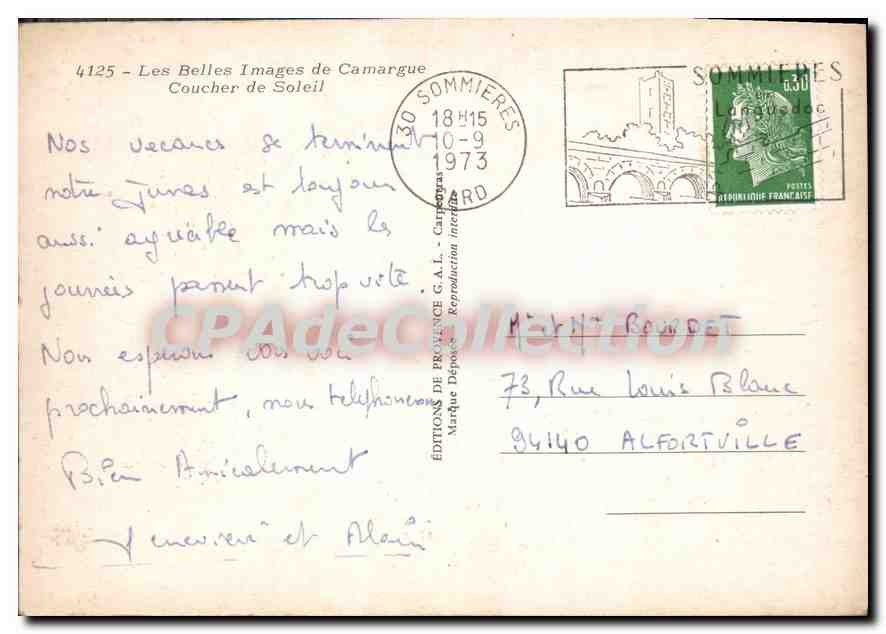 4125 - Les Belles Images de Camargue
Coucher de Soleil
Nos vacances se terminent
notre est toujours
aussi agréable mais les
journées passent trop vite.
Nous espérons vous voir
prochainement, nous téléphonerons
Bien Amicalement
Geneviève et Alain
30 SOMMIERES
18H15
10-9
1973
GARD
SOMMIERES
en
Languedoc
0,30
POSTES
REPUBLIQUE FRANÇAISE
ÉDITIONS DE PROVENCE G.A.L. - Carpentras
Marque Déposée - Reproduction interdite
CPAdeCollection
Mr et Mme BOURDET
73, Rue Louis Blanc
94140 ALFORTVILLE